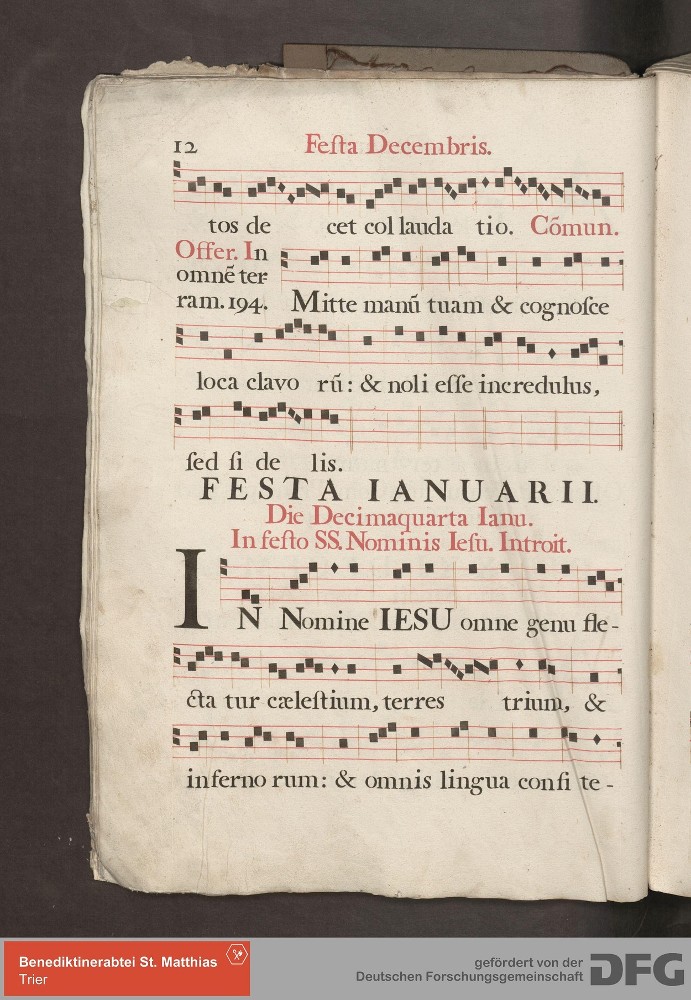 12 Feſta Decembris.
tos de cet col lauda tio. Cõmun.
Offer. In
omnẽ ter-
ram. 194. Mitte manũ tuam & cognoſce
loca clavo rũ: & noli eſſe incredulus,
ſed fi de lis.
FESTA IANUARII.
Die Decimaquarta Ianu.
In feſto SS. Nominis Ieſu. Introit.
IN Nomine IESU omne genu fle-
cta tur cæleſtium, terres trium, &
inferno rum: & omnis lingua confi te-
Benediktinerabtei St. Matthias
Trier
gefördert von der
Deutschen Forschungsgemeinschaft DFG